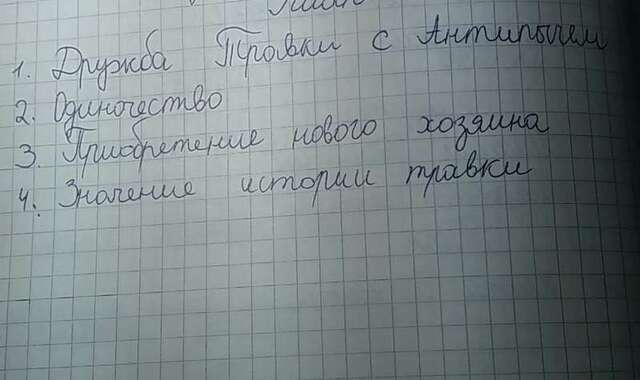 План
1. Дружба Травки с Антипычем
2. Одиночество
3. Приобретение нового хозяина
4. Значение истории травки